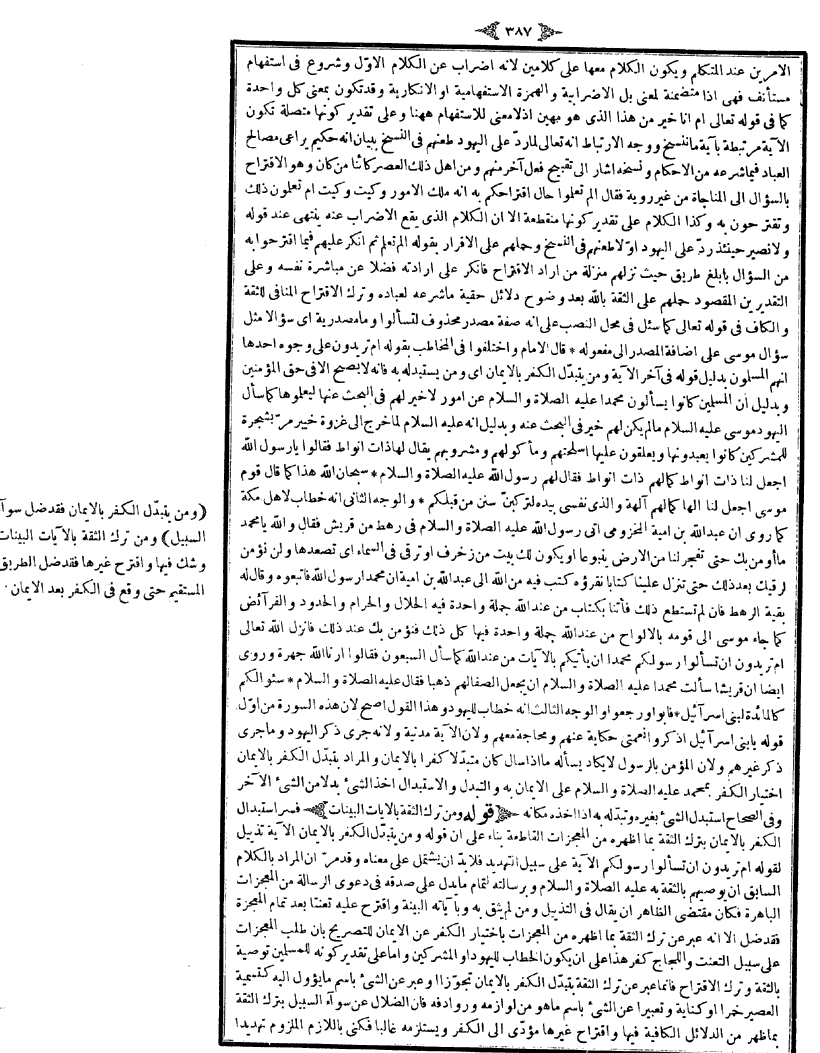 ٣٨٧
الامرين عند المتكلم ويكون الكلام معها على كلامين لانه اضراب عن الكلام الاوّل وشروع فى استفهام
مستأنف فهى اذا متضمنة لمعنى بل الاضرابية والهمزة الاستفهامية او الانكارية وقد تكون بمعنى كل واحدة
كما فى قوله تعالى ام انا خير من هذا الذى هو مهين اذ لا معنى للاستفهام ههنا وعلى تقدير كونها متصلة تكون
الآية مرتبطة بآية ما ننسخ ووجه الارتباط انه تعالى لما ردّ على اليهود طعنهم فى النسخ ببيان انه حكيم يراعى مصالح
العباد فيما شرعه من الاحكام ونسخه اشار الى تقبيح فعل آخر منهم ومن اهل ذلك العصر كائنا من كان وهو الاقتراح
بالسؤال الى المناجاة من غير روية فقال الم تعلموا حال اقتراحكم به انه ملك الامور وكيت وكيت ام تعلمون ذلك
وتقترحون به وكذا الكلام على تقدير كونها منقطعة الا ان الكلام الذى يقع الاضراب عنه ينتهى عند قوله
ولا نصير حينئذ ردّ على اليهود اوّلا طعنهم فى النسخ وحملهم على الاقرار بقوله الم تعلم ثم انكر عليهم فيما اقترحوا به
من السؤال بابلغ طريق حيث نزلهم منزلة من اراد الاقتراح فانكر على ارادته فضلا عن مباشرة نفسه وعلى
التقديرين المقصود حملهم على الثقة بالله بعد وضوح دلائل حقية ما شرعه لعباده وترك الاقتراح المنافى للثقة
والكاف فى قوله تعالى كما سئل فى محل النصب على انه صفة مصدر محذوف لتسألوا وما مصدرية اى سؤالا مثل
سؤال موسى على اضافة المصدر الى مفعوله * قال الامام واختلفوا فى المخاطب بقوله ام تريدون على وجوه احدها
انهم المسلمون بدليل قوله فى آخر الآية ومن يتبدّل الكفر بالايمان اى ومن يستبدله به فانه لا يصح الا فى حق المؤمنين
وبدليل ان المسلمين كانوا يسألون محمدا عليه الصلاة والسلام عن امور لا خير لهم فى البحث عنها ليعلموها كما سأل
اليهود موسى عليه السلام ما لم يكن لهم خير فى البحث عنه وبدليل انه عليه السلام لما خرج الى غزوة خيبر مرّ بشجرة
للمشركين كانوا يعبدونها ويعلقون عليها اسلحتهم ومأكولهم ومشروبهم يقال لها ذات انواط فقالوا يا رسول الله
اجعل لنا ذات انواط كما لهم ذات انواط فقال لهم رسول الله عليه الصلاة والسلام * سبحان الله هذا كما قال قوم
موسى اجعل لنا الها كما لهم آلهة والذى نفسى بيده لتركبنّ سنن من قبلكم * والوجه الثانى انه خطاب لاهل مكة
كما روى ان عبد الله بن امية المخزومى اتى رسول الله عليه الصلاة والسلام فى رهط من قريش فقال والله يا محمد
ما أومن بك حتى تفجر لنا من الارض ينبوعا او يكون لك بيت من زخرف او ترقى فى السماء اى تصعدها ولن نؤمن
لرقيك بعد ذلك حتى تنزل علينا كتابا نقرؤه كتب فيه من الله الى عبد الله بن امية ان محمد رسول الله فاتبعوه وقال له
بقية الرهط فان لم تستطع ذلك فأتنا بكتاب من عند الله جملة واحدة فيه الحلال والحرام والحدود والفرآئض
كما جاء موسى الى قومه بالالواح من عند الله جملة واحدة فيها كل ذلك فنؤمن بك عند ذلك فانزل الله تعالى
ام تريدون ان تسألوا رسولكم محمدا ان يأتيكم بالآيات من عند الله كما سأل السبعون فقالوا ارنا الله جهرة وروى
ايضا ان قريشا سألت محمدا عليه الصلاة والسلام ان يجعل الصفا لهم ذهبا فقال عليه الصلاة والسلام * سئوالكم
كالمائدة لبنى اسرآئيل * فابوا ورجعوا والوجه الثالث انه خطاب لليهود وهذا القول اصح لان هذه السورة من اوّل
قوله يا بنى اسرآئيل اذكروا نعمتى حكاية عنهم ومحاجة معهم ولان الآية مدنية ولانه جرى ذكر اليهود وما جرى
ذكر غيرهم ولان المؤمن بالرسول لا يكاد يسأله ما اذا سال كان متبدّلا كفرا بالايمان والمراد بتبدّل الكفر بالايمان
اختيار الكفر بمحمد عليه الصلاة والسلام على الايمان به والتبدل والاستبدال اخذ الشئ بدلا من الشئ الآخر
وفى الصحاح استبدل الشئ بغيره وتبدّله به اذا اخذه مكانه (قوله ومن ترك الثقة بالآيات البينات) فسر استبدال
الكفر بالايمان بترك الثقة بما اظهره من المعجزات القاطعة بناء على ان قوله ومن يتبدّل الكفر بالايمان الآية تذييل
لقوله ام تريدون ان تسألوا رسولكم الآية على سبيل التهديد فلا بدّ ان يشتمل على معناه وقد مرّ ان المراد بالكلام
السابق ان يوصيهم بالثقة به عليه الصلاة والسلام وبرسالته لتمام ما يدل على صدقه فى دعوى الرسالة من المعجزات
الباهرة فكان مقتضى الظاهر ان يقال فى التذييل ومن لم يثق به وبآياته البينة واقترح عليه تعنتا بعد تمام المعجزة
فقد ضل الا انه عبر عن ترك الثقة بما اظهره من المعجزات باختيار الكفر عن الايمان للتصريح بان طلب المعجزات
على سبيل التعنت واللجاج كفر هذا على ان يكون الخطاب لليهود او المشركين واما على تقدير كونه للمسلمين توصية
بالثقة وترك الاقتراح فانما عبر عن ترك الثقة بتبدّل الكفر بالايمان تجوّزا او عبر عن الشئ باسم ما يؤول اليه كتسمية
العصير خمرا او كناية وتعبيرا عن الشئ باسم ما هو من لوازمه وروادفه فان الضلال عن سوآء السبيل بترك الثقة
بما ظهر من الدلائل الكافية فيها واقتراح غيرها مؤدّى الى الكفر ويستلزمه غالبا فكنى باللازم الملزوم تهديدا
(ومن يتبدّل الكفر بالايمان فقد ضل سوآء
السبيل) ومن ترك الثقة بالآيات البينات
وشك فيها واقترح غيرها فقد ضل الطريق
المستقيم حتى وقع فى الكفر بعد الايمان ·